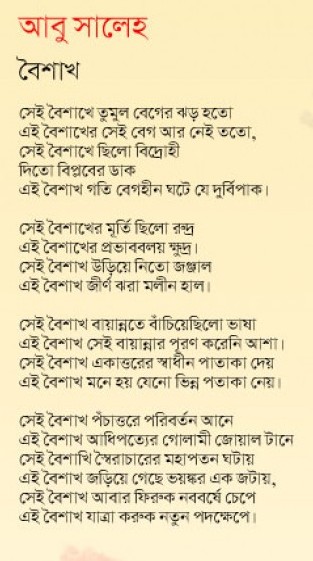 আবু সালেহ
বৈশাখ
সেই বৈশাখে তুমুল বেগের ঝড় হতো
এই বৈশাখের সেই বেগ আর নেই ততো,
সেই বৈশাখে ছিলো বিদ্রোহী
দিতো বিপ্লবের ডাক
এই বৈশাখ গতি বেগহীন ঘটে যে দুর্বিপাক।
সেই বৈশাখের মূর্তি ছিলো রুদ্র
এই বৈশাখের প্রভাববলয় ক্ষুদ্র।
সেই বৈশাখ উড়িয়ে নিতো জঞ্জাল
এই বৈশাখ জীর্ণ ঝরা মলীন হাল।
সেই বৈশাখ বায়ান্নতে বাঁচিয়েছিলো ভাষা
এই বৈশাখ সেই বায়ান্নার পূরণ করেনি আশা।
সেই বৈশাখ একাত্তরের স্বাধীন পাতাকা দেয়
এই বৈশাখ মনে হয় যেনো ভিন্ন পতাকা নেয়।
সেই বৈশাখ পঁচাত্তরে পরিবর্তন আনে
এই বৈশাখ আধিপত্যের গোলামী জোয়াল টানে
সেই বৈশাখি স্বৈরাচারের মহাপতন ঘটায়
এই বৈশাখ জড়িয়ে গেছে ভয়ঙ্কর এক জটায়,
সেই বৈশাখ আবার ফিরুক নববর্ষে চেপে
এই বৈশাখ যাত্রা করুক নতুন পদক্ষেপে।